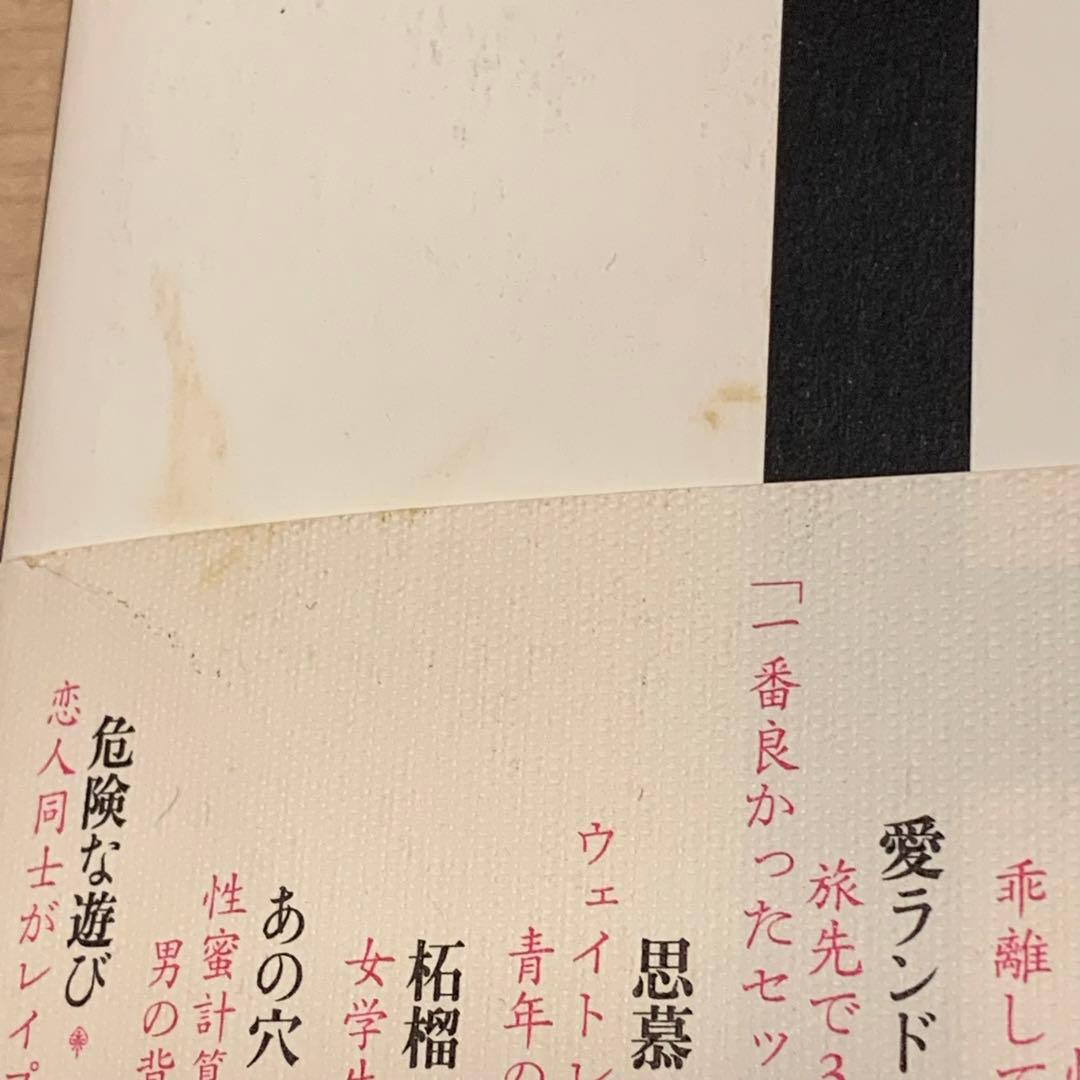 乖離して
愛ランド
旅先で3
「一番良かったセッ
思慕
ウェイトレ
青年の
柘榴
女学生
あの穴
性蜜計算
男の背
危険な遊び
恋人同士がレイプ